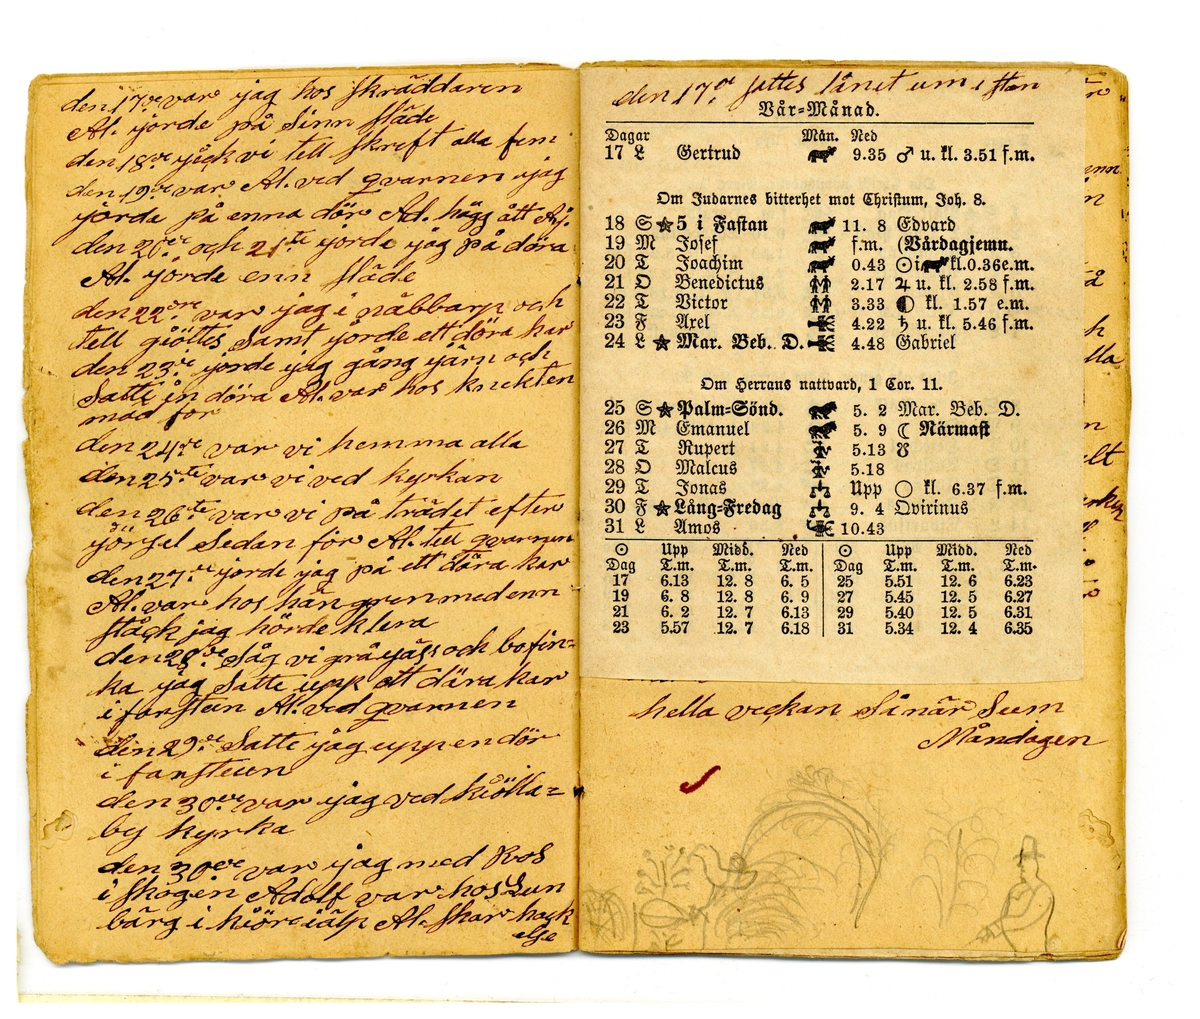 den 17de var jag hos skräddaren
Al. jorde på Sinn släde
den 18de gick vi tell skreft alla fem
den 19de var Al. ved qvarnen jag
jorde på enna dör Ad. hägg ått Aj.
den 20de och 21te jorde jag på döra
Al. jorde enn släde
den 22dre var jag i näbbarp och
tell giöttes Samt jorde ett döra kar
den 23je jorde jag gång järn och
Satte in döra Al. var hos knekten
mad for
den 24de var vi hemma alla
den 25te var vi ved kyrkan
den 26te var vi på trädet efter
jörsel Sedan för Al. tell qvarnen
den 27de jorde jag på ett döra kar
Al. var hos hängren med enn
ståck jag hörde klera
den 28de Såg vi grå jäss och bofin=
ka jag Satte upp ett dära kar
i farsteun Al. ved qvarnen
den 29de Satte jag upp en dör
i farsteun
den 30de var jag ved kiölla=
by kyrka
den 30de var jag med Ros
i skogen Adolf var hos Lun
bärg i kiöreiälp Al. skar hack
else
den 17de settes lånet um eften
Vår=Månad.
Dagar Mån. Ned
17 L Gertrud 9.35 ♂ u. kl. 3.51 f.m.
Om Judarnes bitterhet mot Christum, Joh. 8.
18 S ★ 5 i Fastan 11. 8 Edvard
19 M Josef f.m. (Vårdagjemn.
20 T Joachim 0.43 ☉ i kl. 0.36 e.m.
21 O Benedictus 2.17 ♃ u. kl. 2.58 f.m.
22 T Victor 3.33 ◐ kl. 1.57 e.m.
23 F Axel 4.22 ♄ u. kl. 5.46 f.m.
24 L ★ Mar. Beb. D. 4.48 Gabriel
Om Herrans nattvard, 1 Cor. 11.
25 S ★ Palm=Sönd. 5. 2 Mar. Beb. D.
26 M Emanuel 5. 9 ☾ Närmast
27 T Rupert 5.13 ☋
28 O Malcus 5.18
29 T Jonas Upp ○ kl. 6.37 f.m.
30 F ★ Lång=Fredag 9. 4 Qvirinus
31 L Amos 10.43
☉ Upp Midd. Ned ☉ Upp Midd. Ned
Dag T.m. T.m. T.m. Dag T.m. T.m. T.m.
17 6.13 12. 8 6. 5 25 5.51 12. 6 6.23
19 6. 8 12. 8 6. 9 27 5.45 12. 5 6.27
21 6. 2 12. 7 6.13 29 5.40 12. 5 6.31
23 5.57 12. 7 6.18 31 5.34 12. 4 6.35
hella veckan Så när Sum
Måndagen